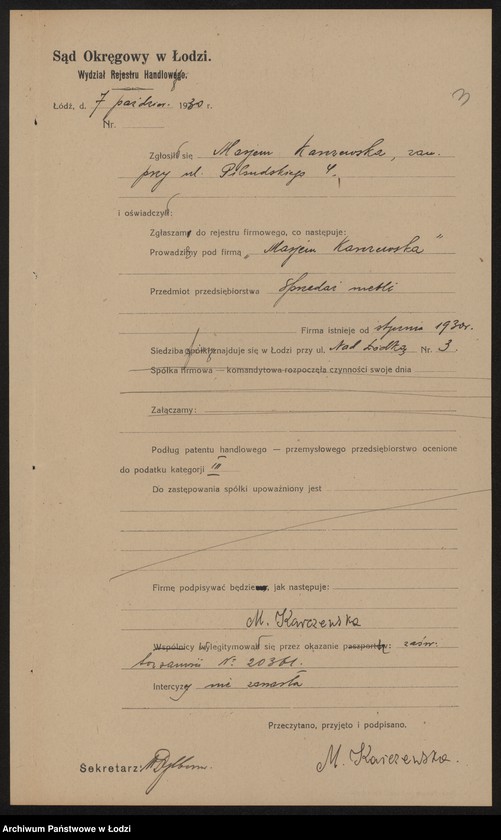 Sąd Okręgowy w Łodzi.
Wydział Rejestru Handlowego.
3
Łódź, d. 7 paździer. 1930 r.
Nr.
Zgłosił się Maryem Karczewska, zam.
przy ul. Piłsudskiego 4.
i oświadczył:
Zgłaszam do rejestru firmowego, co następuje:
Prowadzimy pod firmą „Maryem Karczewska"
Przedmiot przedsiębiorstwa Sprzedaż mebli
Firma istnieje od stycznia 1930 r.
Siedziba znajduje się w Łodzi przy ul. Nad Łódką Nr. 3.
Spółka firmowa — komandytowa rozpoczęła czynności swoje dnia
Załączamy:
Podług patentu handlowego — przemysłowego przedsiębiorstwo ocenione
do podatku kategorji III
Do zastępowania spółki upoważniony jest
Firmę podpisywać będzie, jak następuje:
M. Karczewska
Wspólnicy wylegitymował się przez okazanie paszportów: zaśw.
tożsamości Nr. 20361.
Intercyzy nie zawarła
Przeczytano, przyjęto i podpisano.
Sekretarz:
M. Karczewska.
Archiwum Państwowe w Łodzi